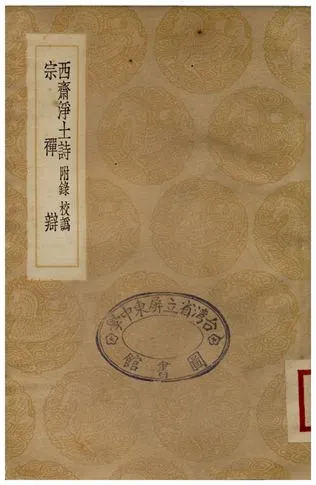 西齋淨土詩 附錄 校譌
宗禪辯
台灣省立屏東中學
圖書館